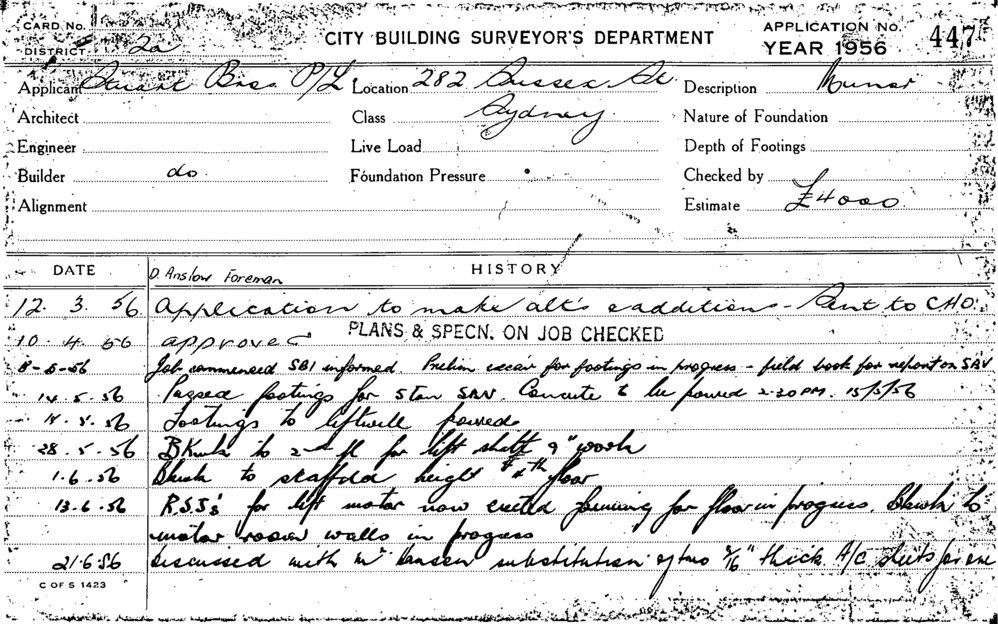 CARD No.
DISTRICT 2a
CITY BUILDING SURVEYOR'S DEPARTMENT
APPLICATION No. 447
YEAR 1956
Applicant Stuart Bros P/L Location 282 Sussex St Description
Architect Class Sydney Nature of Foundation
Engineer Live Load Depth of Footings
Builder do Foundation Pressure Checked by
Alignment Estimate £4000
DATE D. Anslow Foreman HISTORY
12. 3. 56 Application to make alt's & additions - Sent to CHO.
PLANS & SPECN. ON JOB CHECKED
10. 4. 56 approved
8-5-56 Job commenced SBI informed Prelim excav for footings in progress - field book for report on
14. 5. 56 Passed footings for Concrete to be poured 2-30 PM. 15/5/56
5. 56 Footings to liftwell poured
28. 5. 56 BKwk to 2nd fl for lift shaft 9" work
1. 6. 56 Bkwk to scaffold height 4th floor
13. 6. 56 R.S.J's for lift motor now erected forming for floor in progress. Bkwk to
motor room walls in progress
21. 6. 56 Discussed with Mr Hansen substitution of two 3/16" thick A/C sheets for one
C OF S 1423